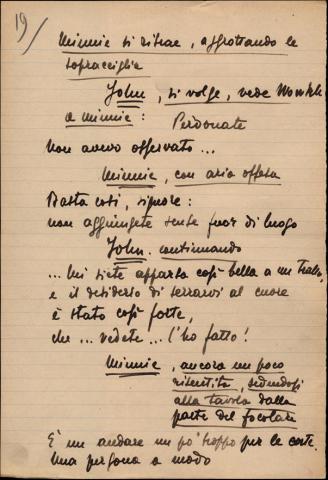 19/
Minnie si ritrae, aggrottando le
sopracciglia
John, si volge, vede Wowkle
a Minnie: Perdonate
non avevo osservato...
Minnie, con aria offesa
Basta così, signore:
non aggiungete scuse fuor di luogo
John. continuando
... mi siete apparsa così bella a un tratto,
e il desiderio di serrarvi al cuore
è stato così forte,
che... vedete... l'ho fatto!
Minnie, ancora un poco
risentita, sedendosi
alla tavola dalla
parte del focolare
È un andare un po' troppo per le corte.
Una persona a modo